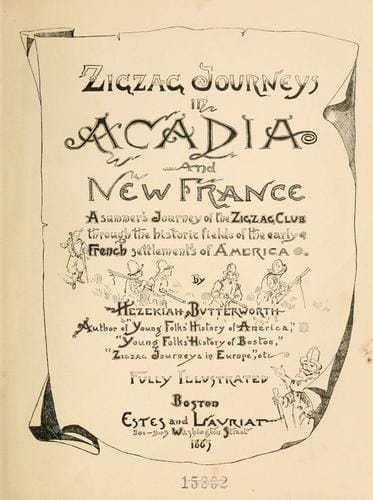 Zigzag Journeys
in
Acadia
and
New France
A summer's Journey of the Zigzag Club
through the historic fields of the early
French settlements of America.
By
Hezekiah Butterworth
Author of "Young Folks' History of America,"
"Young Folks' History of Boston,"
"Zigzag Journeys in Europe," etc
Fully Illustrated
Boston
Estes and Lauriat
301-305 Washington Street
1885
15882